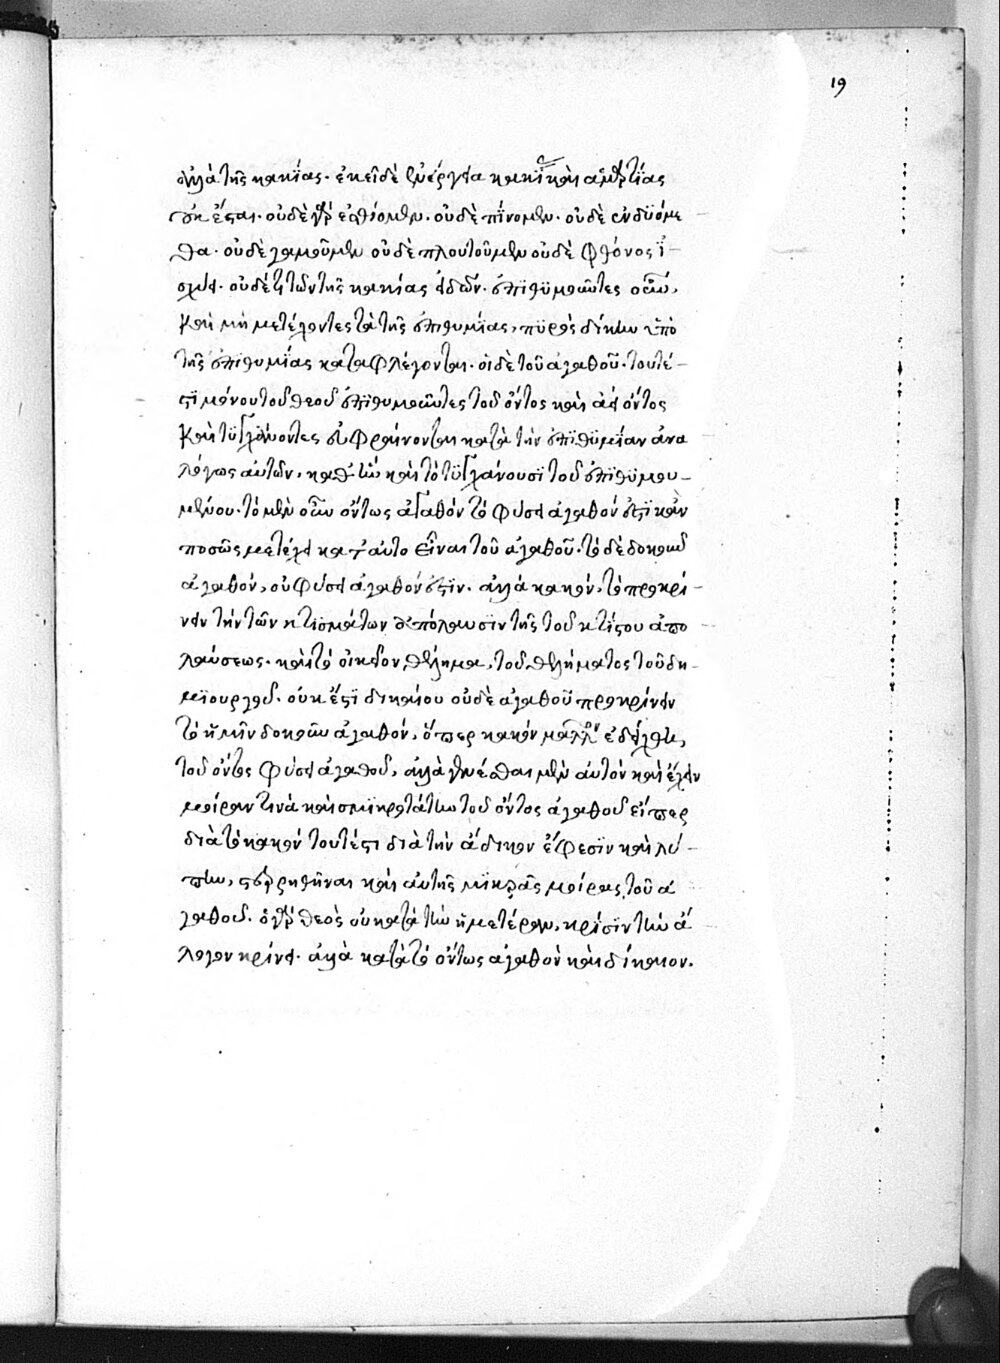 19
ἀλλὰ τῆς κακίας· ἐκεῖ δὲ ἐνέργεια κακίας καὶ ἁμαρτίας
οὐκ ἔσται· οὐδὲ γὰρ ἐσθίομεν· οὐδὲ πίνομεν· οὐδὲ ἐνδϋόμε
θα· οὐδὲ γαμοῦμεν οὐδὲ πλουτοῦμεν οὐδὲ φθόνος ἰ-
σχύει· οὐδέ τι τῶν τῆς κακίας εἰδῶν· ἐπιθυμοῦντες οὖν,
καὶ μὴ μετέχοντες τὰ τῆς ἐπιθυμίας, πυρὸς δίκην ὑπὸ
τῆς ἐπιθυμίας καταφλέγονται· οἱ δὲ τοῦ ἀγαθοῦ· τουτέ-
στι μόνου τοῦ θεοῦ ἐπιθυμοῦντες τοῦ ὄντος καὶ ἀεὶ ὄντος
καὶ τυγχάνοντες εὐφραίνονται κατὰ τὴν ἐπιθυμίαν ἀνα
λόγως αὐτῶν, καθ' ἣν καὶ τὸ τυγχάνουσι τοῦ ἐπιθυμου-
μένου· τὸ μὲν οὖν ὄντως ἀγαθὸν τὸ φύσει ἀγαθόν ἐστι κἂν
ποσῶς μετέχει κατ' αὐτὸ εἶναι τοῦ ἀγαθοῦ· τὸ δὲ δοκοῦν
ἀγαθόν, οὐ φύσει ἀγαθόν ἐστιν· ἀλλὰ κακόν, τὸ προκρί-
νειν τὴν τῶν κτισμάτων ἀπόλαυσιν τῆς τοῦ κτίστου ἀπο
λαύσεως· καὶ τὸ οἰκεῖον θέλημα, τοῦ θελήματος τοῦ δη-
μιουργοῦ· οὐκ ἔστι δικαίου οὐδὲ ἀγαθοῦ προκρίνειν
τὸ ἡμῖν δοκοῦν ἀγαθόν, ὅπερ κακὸν μᾶλλον ἐδείχθη,
τοῦ ὄντος φύσει ἀγαθοῦ, ἀλλὰ γενέσθαι μὲν αὐτὸν καὶ ἔχειν
μοῖραν τινὰ καὶ σμικροτάτην τοῦ ὄντος ἀγαθοῦ εἴπερ
διὰ τὸ κακὸν τουτέστι διὰ τὴν ἄδικον ἔφεσιν καὶ λύ-
πην, στερηθῆναι καὶ αὐτῆς μικρᾶς μοίρας τοῦ ἀ
γαθοῦ· ὁ γὰρ θεὸς οὐ κατὰ τὴν ἡμετέραν κρίσιν τὴν ἄ
λογον κρίνει· ἀλλὰ κατὰ τὸ ὄντως ἀγαθὸν καὶ δίκαιον.